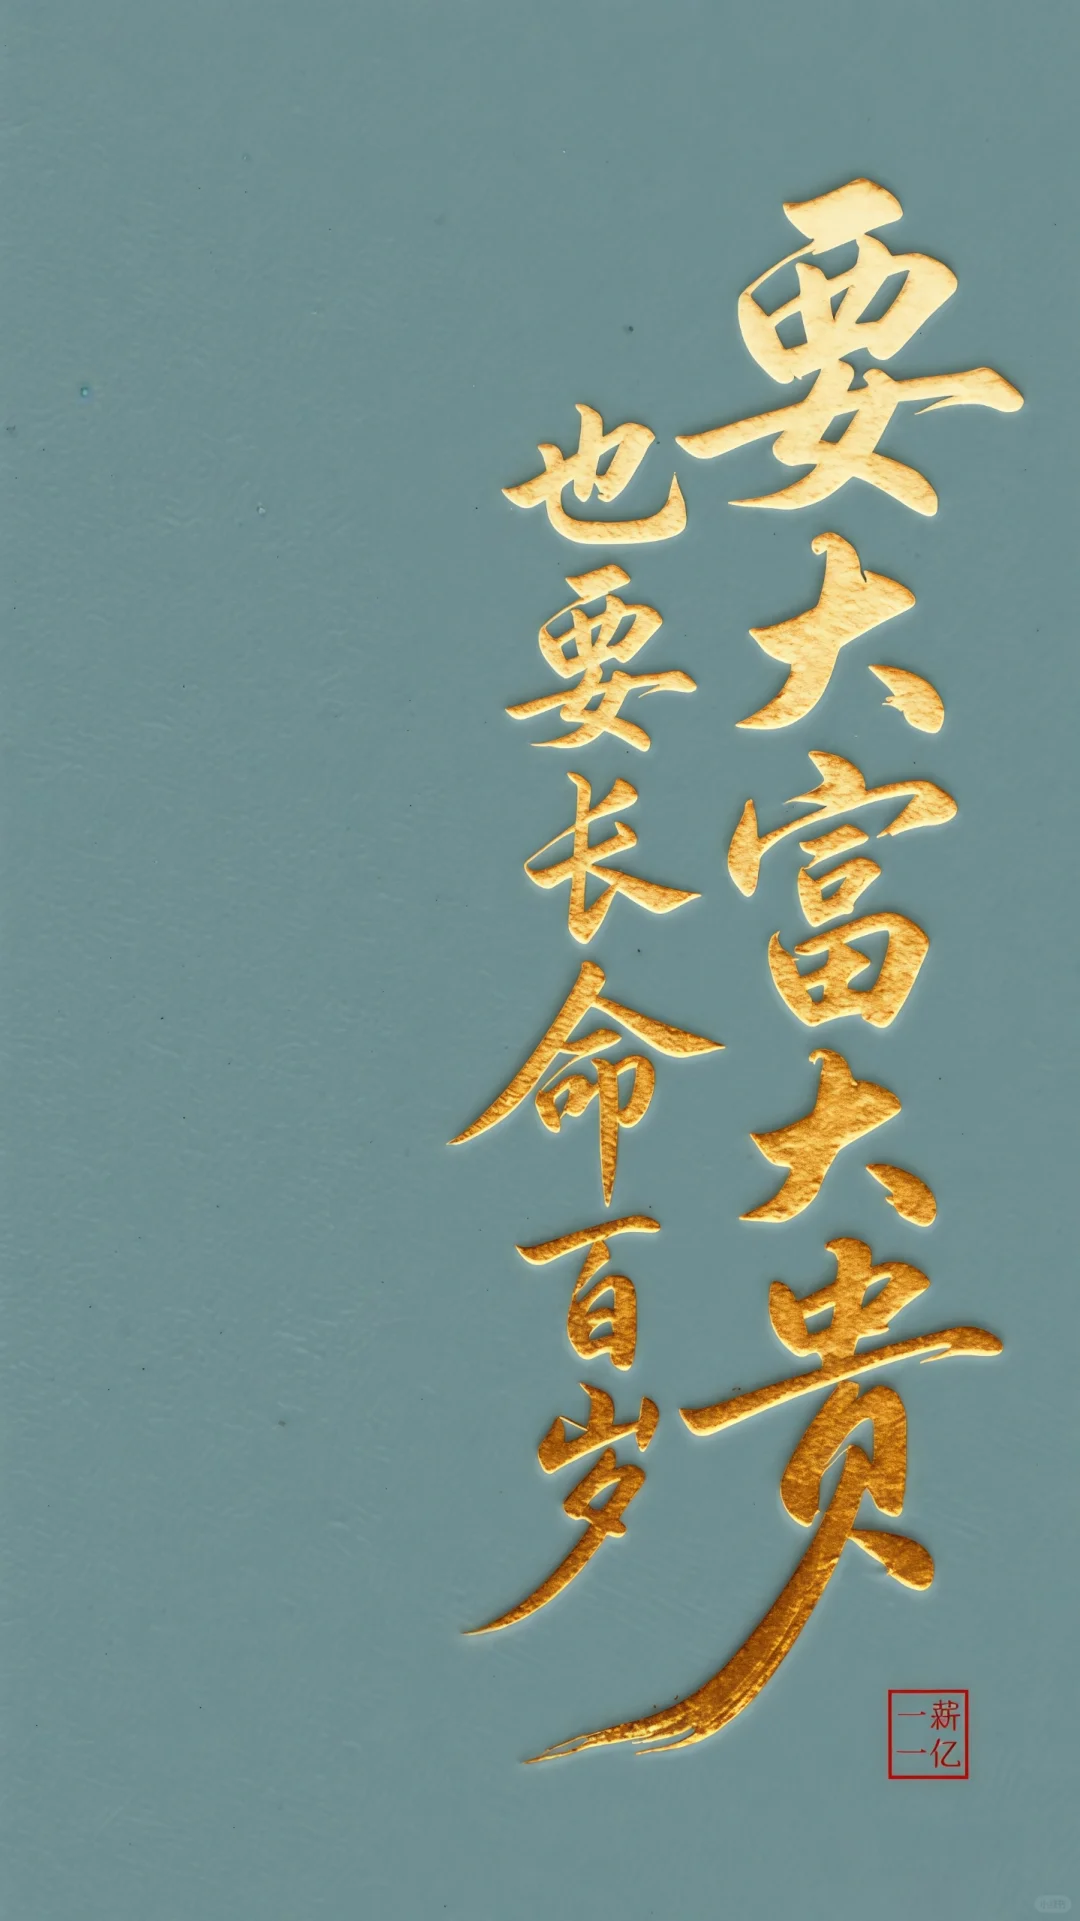 要大富大贵
也要长命百岁
薪亿
一一